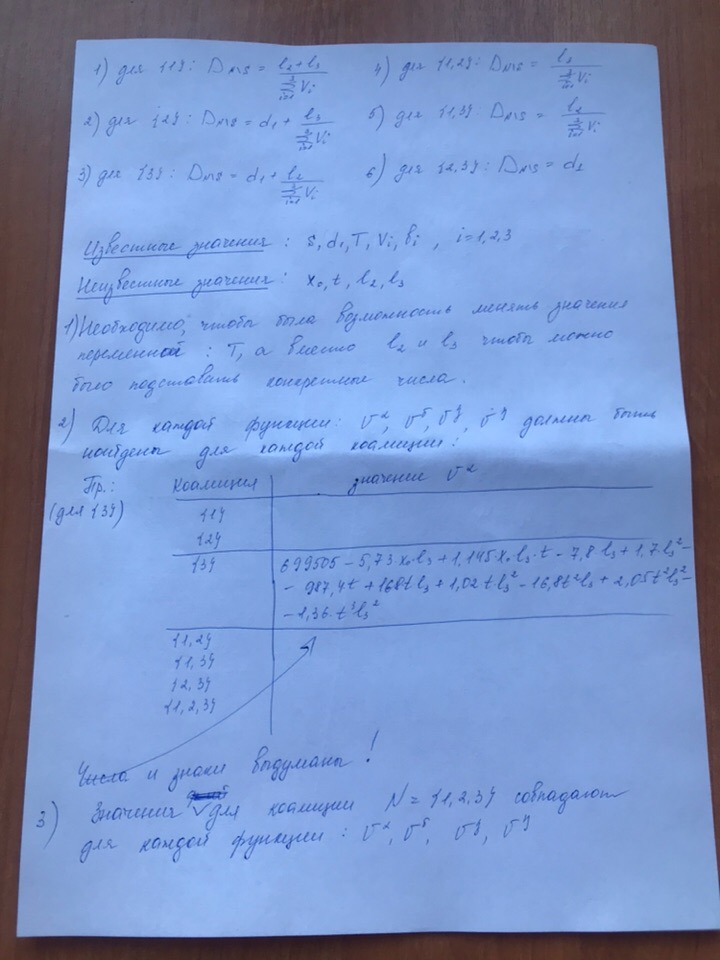 1) для {1}: D_N\S = (l₂+l₃)/(∑_{i=1}^{3} Vᵢ)
4) для {1,2}: D_N\S = l₃/(∑_{i=1}^{3} Vᵢ)
2) для {2}: D_N\S = d₁ + l₃/(∑_{i=1}^{3} Vᵢ)
5) для {1,3}: D_N\S = l₂/(∑_{i=1}^{3} Vᵢ)
3) для {3}: D_N\S = d₁ + l₂/(∑_{i=1}^{3} Vᵢ)
6) для {2,3}: D_N\S = d₁
Известные значения: s, d₁, T, Vᵢ, bᵢ, i=1,2,3
Неизвестные значения: x₀, t, l₂, l₃
1) Необходимо, чтобы была возможность менять значения
переменной: T, а вместо l₂ и l₃ чтобы можно
было подставить конкретные числа.
2) Для каждой функции: V^α, V^δ, V^ζ, V^η должны быть
найдены для каждой коалиции:
Пр.: коалиция значение V^α
(для {3})
{1}
{2}
{3} 699505 - 5,73·x₀l₃ + 1,145·x₀l₃·t - 7,8l₃ + 1,7l₃² -
- 987,4t + 168tl₃ + 1,02tl₃² - 16,8t²l₃ + 2,05t²l₃² -
- 1,36·t³l₃²
{1,2}
{1,3}
{2,3}
{1,2,3}
Числа и знаки выдуманы!
3) Значения для коалиции N={1,2,3} совпадают
для каждой функции: V^α, V^δ, V^ζ, V^η